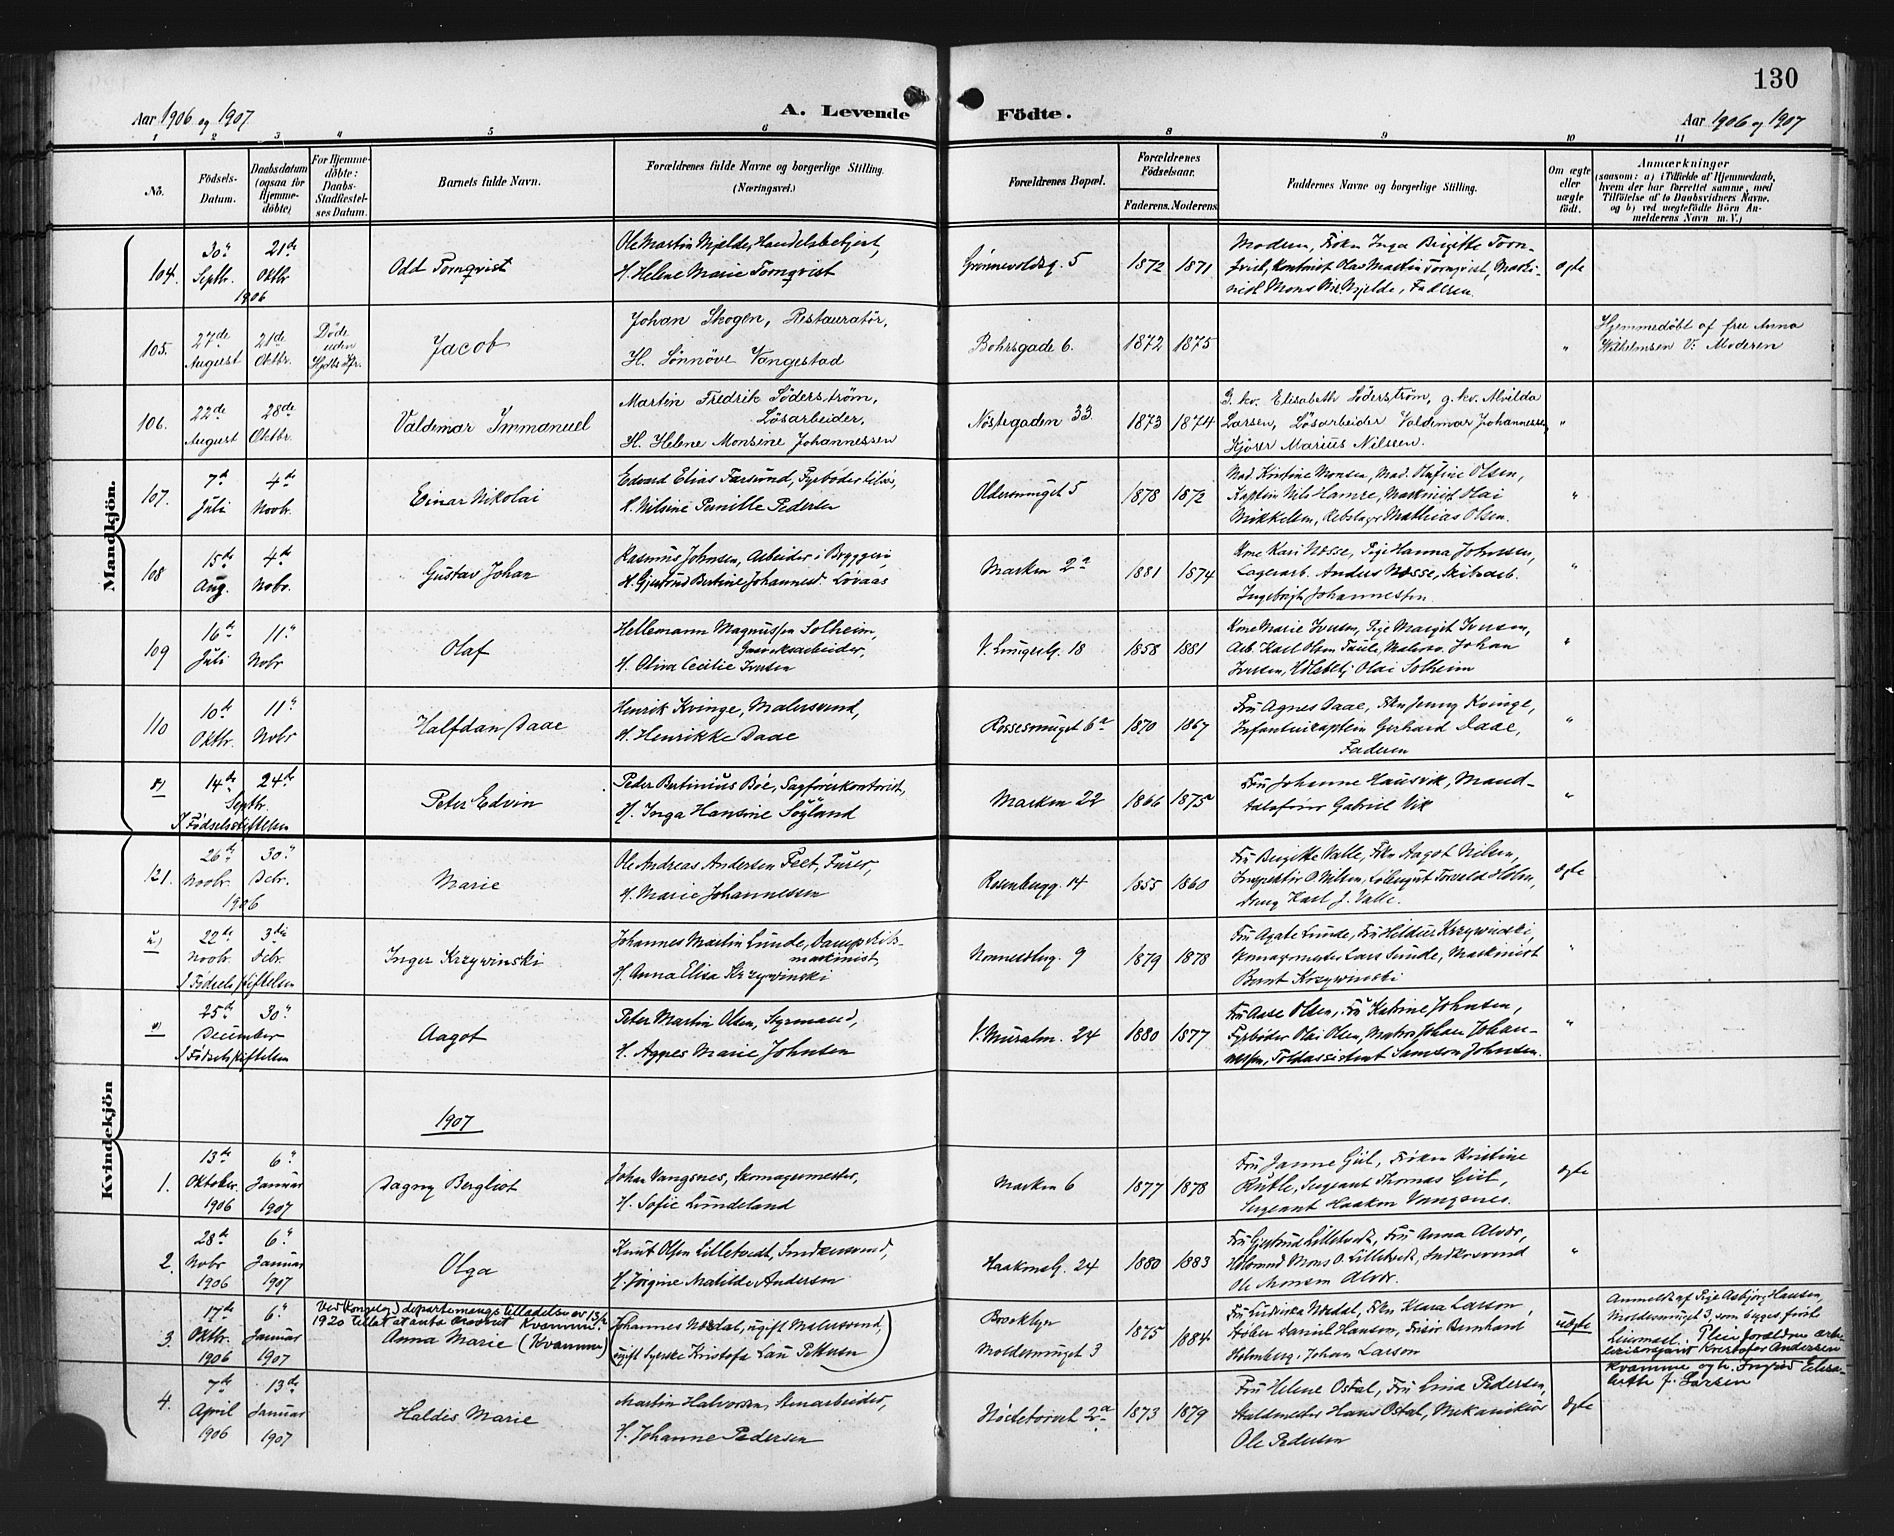 130
Aar 1906 og 1907.
A. Levende Födte.
Aar 1906 og 1907
1 2 3 4 5 6 8 9 10 11
No.
Födsels-
Datum.
Daabsdatum
(ogsaa for
Hjemme-
döbte)
For Hjemme-
döbte:
Daabs-
Stadfæstel-
ses Datum.
Barnets fulde Navn.
Forældrenes fulde Navne og borgerlige Stilling.
(Næringsvei.)
Forældrenes Bopæl.
Forældrenes
Födselsaar.
Faderens. Moderens
Faddernes Navne og borgerlige Stilling.
Om ægte
eller
uægte
födt.
Anmærkninger
(saasom: a) i Tilfælde af Hjemmedaab,
hvem der har forrettet samme, med
Tilföielse af to Daabsvidners Navne.
og b) ved uegtefödte Börn An-
melderens Navn m. V.)
Mandkjön.
104. 30 Septbr. 21de Oktbr 1906
Odd Tornqvist
Ole Martin Mjelde, Handelsbetjent,
H. Helene Marie Tornqvist
Grønnevoldsg. 5
1872 1871
Moderen, Frkn Inga Birgitte Torn-
qvist, Kontorist Olaf Martin Tornqvist, Maski-
nist Mons Mjelde, Faderen
egte
105. 27de August 21de Oktbr.
Døde uden
Jacob
Johan Skogen, Restauratør,
H. Sønnøve Vangestad
Bohrsgade 6.
1872 1875
"
Hjemmedøbt af fru Anna
Wilhelmsen V: Moderen
106. 22de August 28de Oktbr.
Valdemar Immanuel
Martin Fredrik Söderstrøm,
Løsarbeider,
H. Helene Monsine Johannessen
Nöstegaden 33
1873 1874
G. kv. Elisabeth Söderström, g. kv. Alvilda
Larsen, Løsarbeider Valdemar Johannessen,
Kjører Marius Nilssen.
"
107. 7de Juli 4de Novbr.
Einar Nikolai
Edvard Elias Farsund, Fyrbøder
H. Nilsine Pernille Pedersen
Oldersmuget 5
1878 1872
Mad. Kristine Monsen, Mad. Olufine Olsen,
Kaptein Nils Hamre, Maskinist Olai
Mikkelsen, Rebslager Mathias Olsen.
"
108 15de Aug. 4de Novbr.
Gustav Johan
Rasmus Johnsen, Arbeider i Bryggeri,
H. Gjertrud Bertine Johannesd. Lövaas
Marken 2a
1881 1874
Kone Kari Næsse, Pige Hanna Johnsen,
Lagerarb. Anders Næsse, Skibsarb.
Ingebrigt Johannesen
"
109 16de Juli 11 Novbr
Olaf
Hellemann Magnussen Solheim,
H. Oliva Cecilie Iversen
18
1858 1881
Kone Marie Iversen, Pige Margit Iversen,
Arb. Karl Olsen Johan
Iversen, Olai Solheim
"
110 10de Oktbr. 11 Novbr
Halfdan Daae
Henrik Kvinge, Malersvend,
H. Henrikke Daae
Rossesmuget 6a
1870 1867
Fru Agnes Daae, Frkn Jenny Kvinge,
Infantericaptein Gerhard Daae,
Faderen
"
14de 24de Septbr.
I Födselsstiftelsen
Peter Edvin
Peder Bertinius Böe, Sagførerkontorist,
H. Inga Hansine Söyland
Marken 22
1866 1875
Fru Johanne Hausvik, Mand-
talsfører Gabriel Vik
"
Kvindekjön
121. 26de Novbr. 30 Debr. 1906
Marie
Ole Andreas Andersen
H. Marie Johannessen
Rosenbergg. 14
1855 1860
Fru Birgitte Valle, Frkn Aagot Nilsen,
Inspektør O Nilsen, Torvald Holm,
Karl J. Valle.
egte
22de Novbr. 3die Debr.
I Födselsstiftelsen
Inger Krzywinski
Johannes Martin Lunde, Dampskibs-
maskinist,
H. Anna Elisa Krzywinski
9
1879 1878
Fru Agate Lunde, Fru Hildur Krzywinski,
Skomagermester Lars Lunde, Maskinist
Bernt Krzywinski
"
25de 30 December
I Födselsstiftelsen
Aagot
Peter Martin Olsen, Styrmand,
H. Agnes Marie Johnsen
V. Muralm. 24
1880 1877
Fru Aase Olsen, Fru Katrine Johnsen,
Fyrböder Olai Olsen, Matros Johan Johan-
nessen, Toldassistent Samson Johnsen.
"
1907
1. 13de Oktober 1906 6 Januar 1907
Dagny Bergliot
Johan Vangsnes, Skomagermester,
H. Sofie Lundeland
Marken 6
1877 1878
Fru Janne Giil, Frøken Kristine
Rutle, Sergeant Thomas Giil,
Sergeant Haakon Vangsnes.
egte
2. 28de Novbr 1906 6 Januar 1907
Olga
Knut Olsen Lilletvedt, Snedkersvend,
H. Jørgine Matilde Andersen
Haakonsg. 24
1880 1883
Fru Gjertrud Lilletvedt, Fru Anna Alvær,
Mons O. Lilletvedt, Snedkersvend
Ole Monsen Alvær.
"
3. 17de Oktbr. 1906 6 Januar 1907
Ved (Kongelig) departementstilladelse av 13/2
1920 tillatt at anta navnet Kvamme.
Anna Marie (Kvamme)
(Johannes Nesdal, ugift Malersvend,
ugift Syerske Kristofa Lau Pettersen)
Brooklyn
Moldesmuget 3
1875 1884
Fru Ludviska Nesdal, Frkn Klara Larsen,
Støber Daniel Hansen, Frisør Bernhard
Holmberg, Johan Larsen
uegte
Anmeldt af Pige Asbjørg Hansen,
Moldesmuget 3, som begges første
leiermaal. Pleieforældrene arbeiderformand Kristofer Andersen
Kvamme og h. Ingrid Elisa-
beth f. Larsen
4. 7de April 1906 13de Januar 1907
Haldis Marie
Martin Halvorsen, Stenarbeider,
H. Johanne Pedersen
Nöstetorvet 2a
1873 1879
Fru Helene Ostal, Fru Lina Pedersen,
Staldmester Hans Ostal, Mekanikus
Ole Pedersen
egte